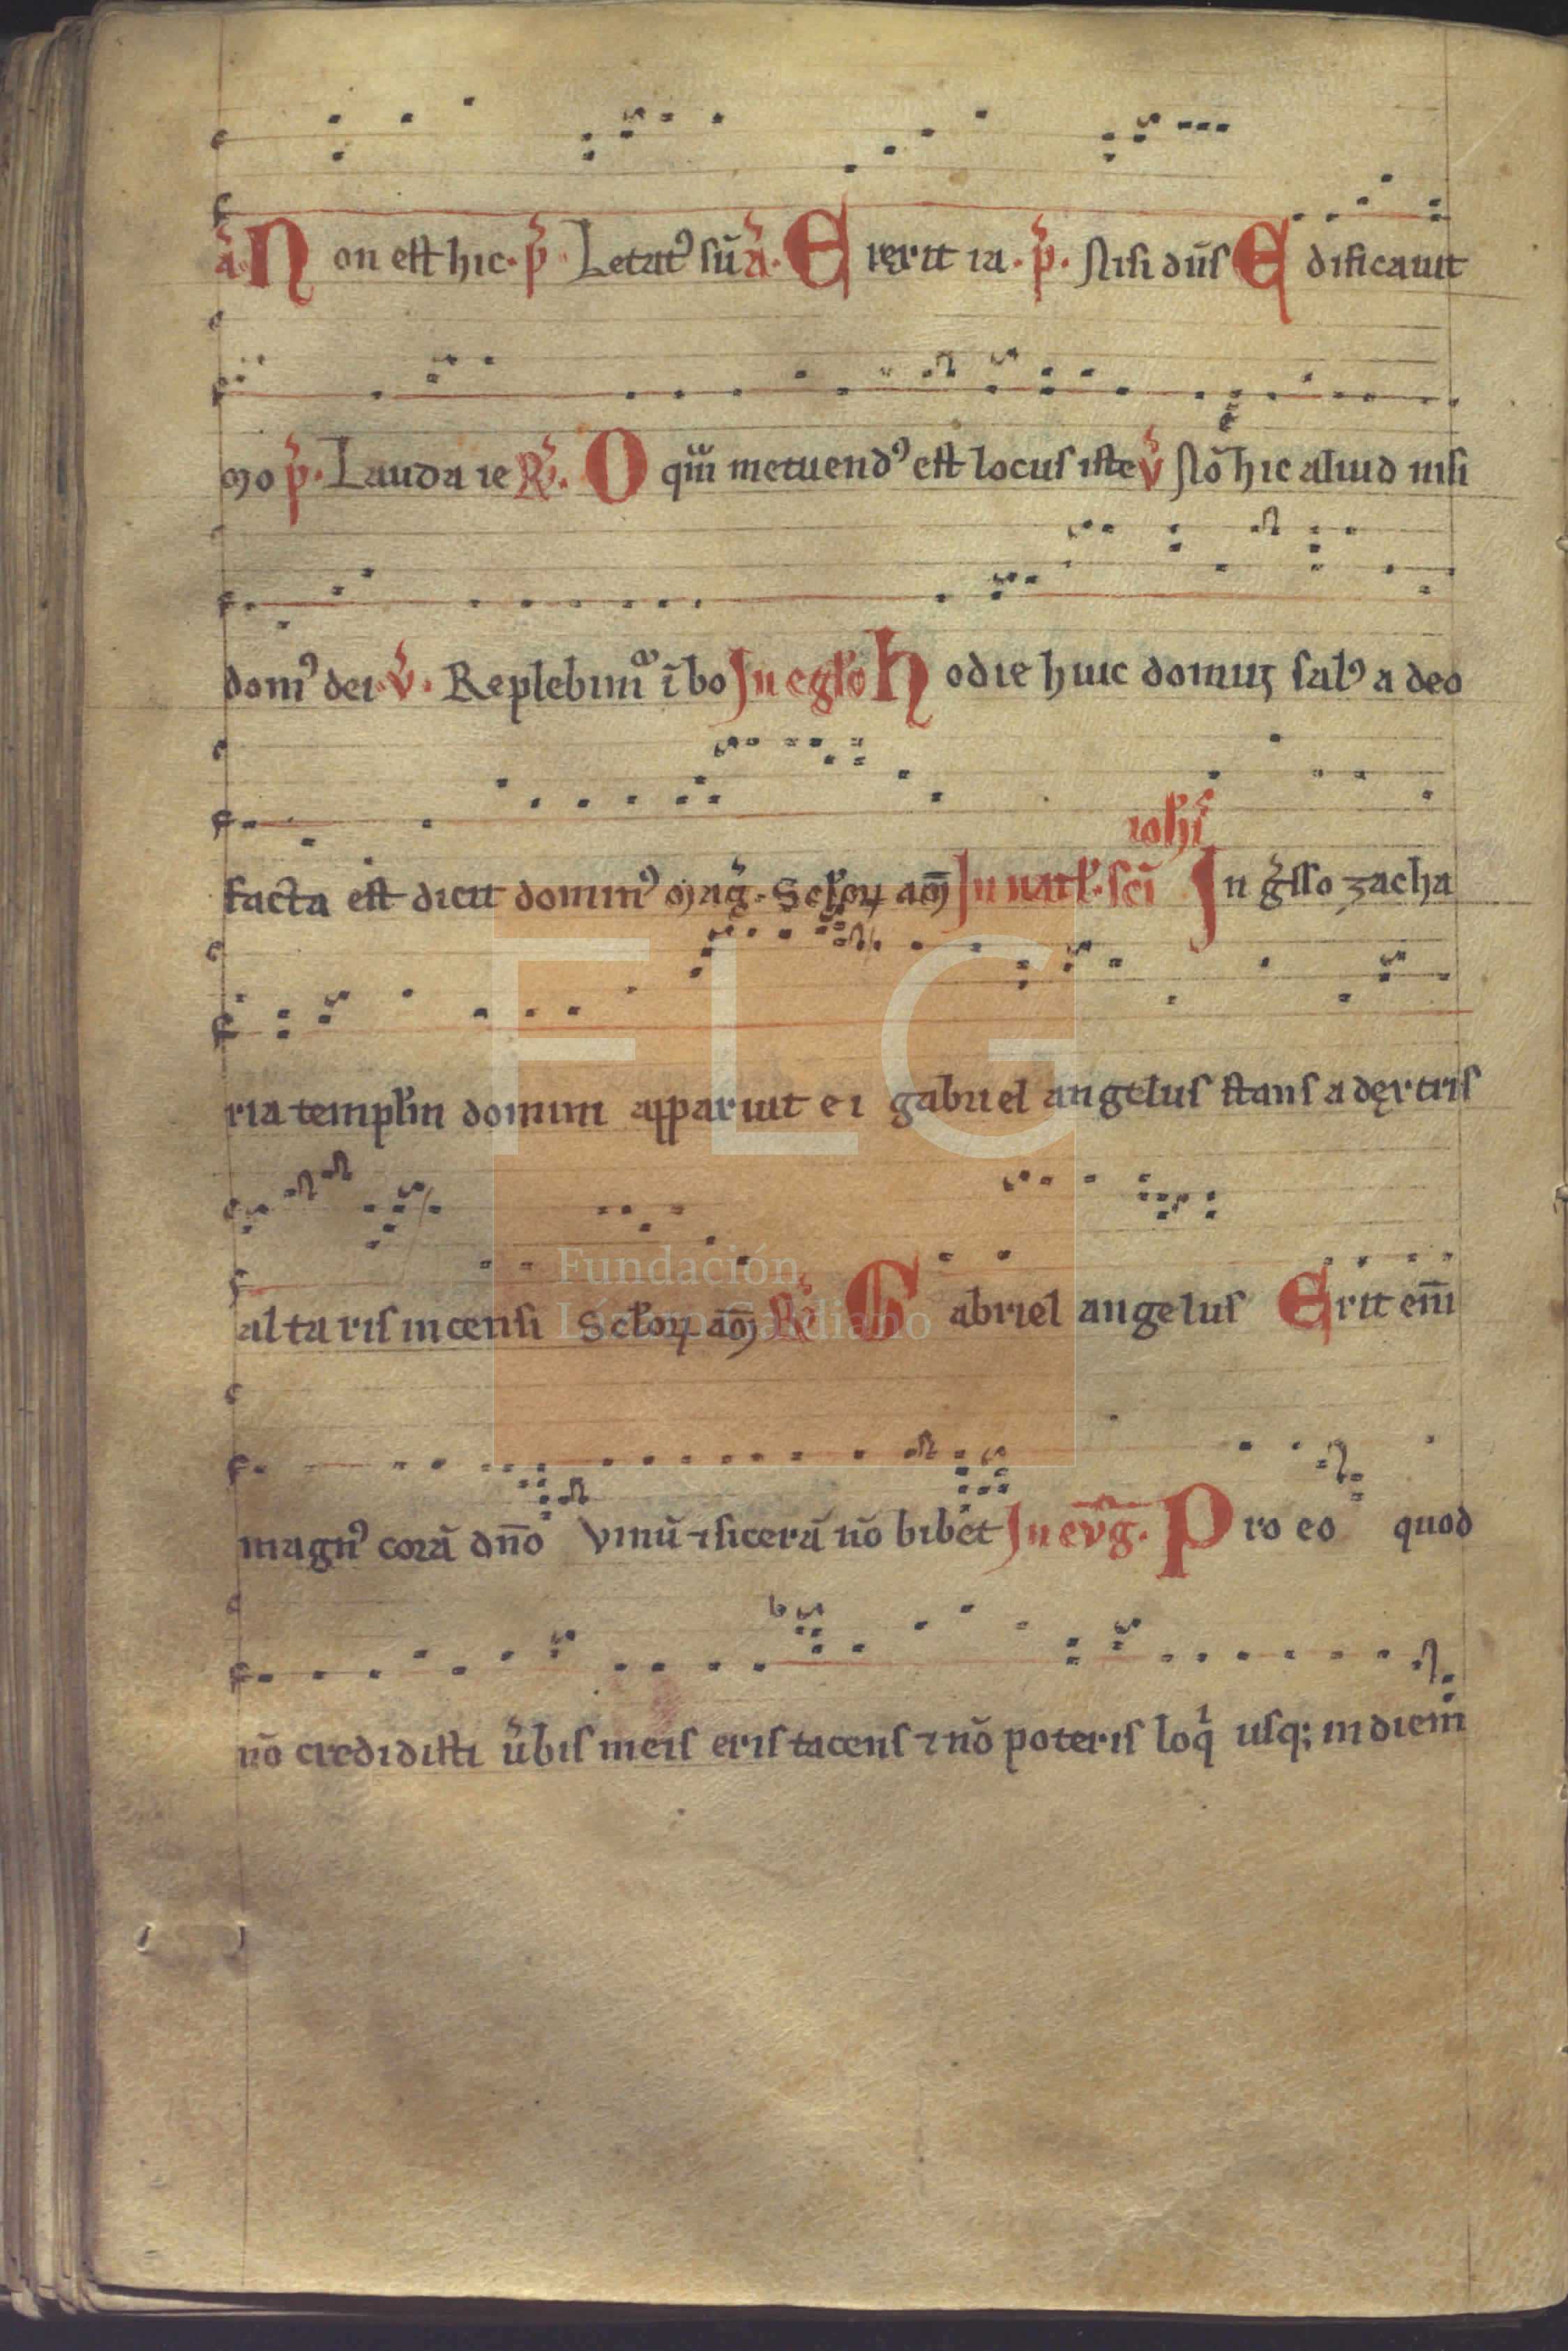 a. Non est hic. p̄. Letatꝰ sū a. Exerit ia. p̄. Nisi dn̄s Edificauit
Mo p̄. Lauda ie ℟. O qm̄ metuendꝰ est locus iste v̄ Nō hic aliud nisi
domꝰ dei v̄. Replebimͣ ī bo In eglo Hodie huic domui salꝰ a deo
facta est dicit dominꝰ Mag. Scloꝝ am̄ In natl. sci
iohis
In gͥsso zacha
ria templm domini apparuit ei gabriel angelus stans a dextris
altaris incensi Scloꝝ am̄ ℟ Gabriel angelus Erit em̄
magnꝰ corā dn̄o Vinū ⁊ sicerā nō bibet In evg. Pro eo quod
nō credidisti u̾bis meis eris tacens ⁊ nō poteris loqͥ usq; in diem
FLG
Fundación
Lázaro Galdiano